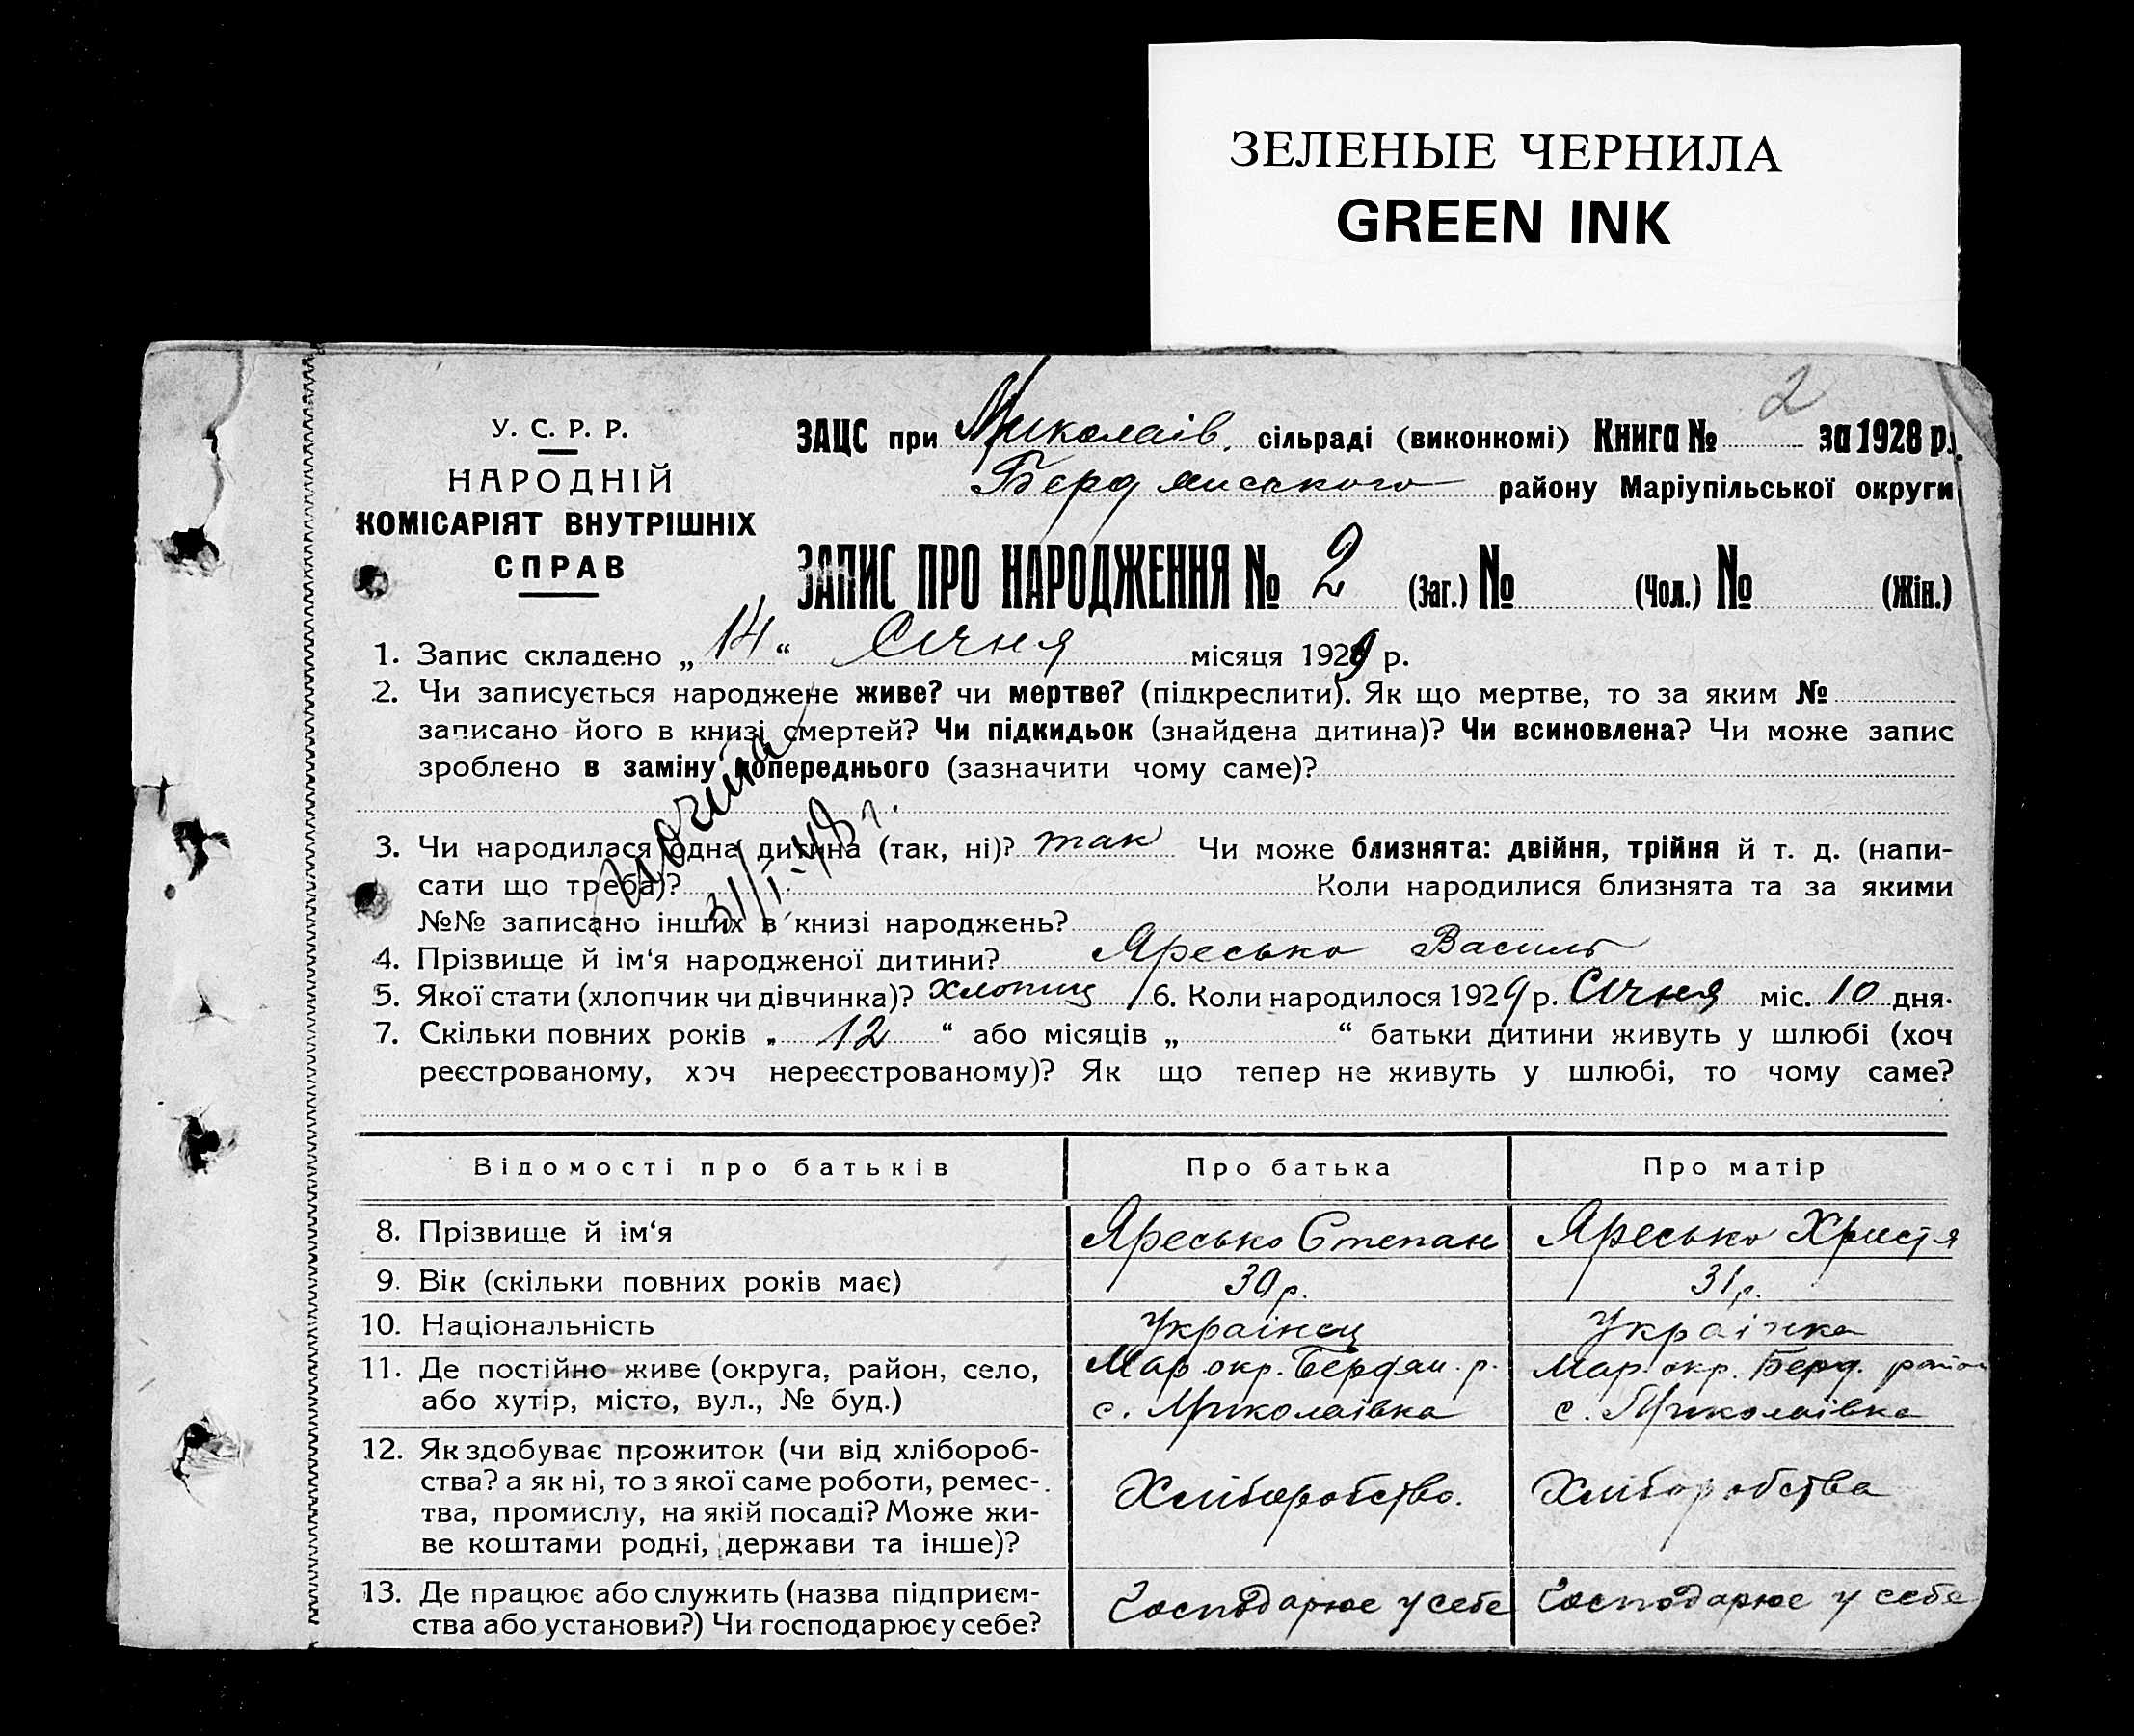 ЗЕЛЕНЫЕ ЧЕРНИЛА
GREEN INK
2
У. С. Р. Р.
НАРОДНІЙ
КОМІСАРІЯТ ВНУТРІШНІХ
СПРАВ
ЗАЦС при Миколаів. сільраді (виконкомі) Книга № за 1928 р.
Бердянського району Маріупільської округи
ЗАПИС ПРО НАРОДЖЕННЯ № 2 (Заг.) № (Чол.) № (Жін.)
1. Запис складено „14“ Січня місяця 1929 р.
2. Чи записується народжене живе? чи мертве? (підкреслити). Як що мертве, то за яким №
записано його в книзі смертей? Чи підкидьок (знайдена дитина)? Чи всиновлена? Чи може запис
зроблено в заміну попереднього (зазначити чому саме)?
31/I-48 г.
3. Чи народилася одна дитина (так, ні)? так Чи може близнята: двійня, трійня й т. д. (напи-
сати що треба)? Коли народилися близнята та за якими
№№ записано інших в книзі народжень?
4. Прізвище й ім‘я народженої дитини? Яресько Василь
5. Якої стати (хлопчик чи дівчинка)? хлопиц 6. Коли народилося 1929 р. Січня міс. 10 дня.
7. Скільки повних років „ 12 “ або місяців „ “ батьки дитини живуть у шлюбі (хоч
реєстрованому, хоч нереєстрованому)? Як що тепер не живуть у шлюбі, то чому саме?
Відомості про батьків Про батька Про матір
8. Прізвище й ім‘я Яресько Степан Яресько Христя
9. Вік (скільки повних років має) 30 р. 31 р.
10. Національність Українец Українка
11. Де постійно живе (округа, район, село, Мар окр. Бердян. р. Мар. окр. Берд. район
або хутір, місто, вул., № буд.) с. Миколаівка с. Миколаівка
12. Як здобуває прожиток (чи від хлібороб-
ства? а як ні, то з якої саме роботи, ремес- Хліборобство. Хліборобства
тва, промислу, на якій посаді? Може жи-
ве коштами родні, держави та інше)?
13. Де працює або служить (назва підприєм- Господарює у себе Господарює у себе
ства або установи?) Чи господарює у себе?